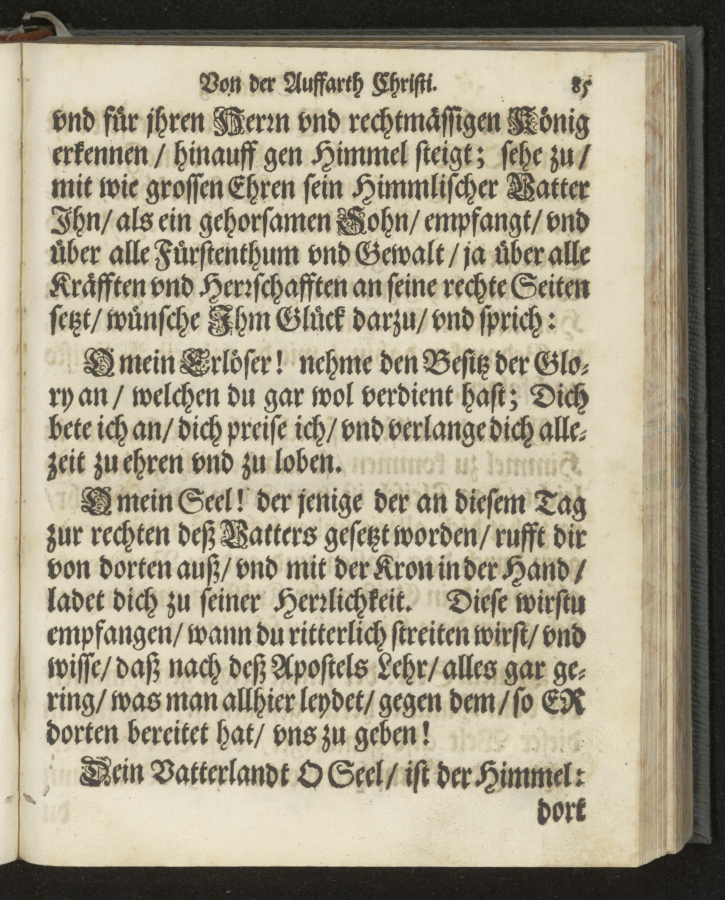 Von der Auffarth Christi. 85
vnd für jhren Herrn vnd rechtmässigen König
erkennen / hinauff gen Himmel steigt; sehe zu /
mit wie grossen Ehren sein Himmlischer Vatter
Ihn / als ein gehorsamen Sohn / empfangt / vnd
über alle Fürstenthum vnd Gewalt / ja über alle
Kräfften vnd Herrschafften an seine rechte Seiten
setzt / wünsche Ihm Glück darzu / vnd sprich:
O mein Erlöser! nehme den Besitz der Glo-
ry an / welchen du gar wol verdient hast; Dich
bete ich an / dich preise ich / vnd verlange dich alle-
zeit zu ehren vnd zu loben.
O mein Seel! der jenige der an diesem Tag
zur rechten deß Vatters gesetzt worden / rufft dir
von dorten auß / vnd mit der Kron in der Hand /
ladet dich zu seiner Herrlichkeit. Diese wirstu
empfangen / wann du ritterlich streiten wirst / vnd
wisse / daß nach deß Apostels Lehr / alles gar ge-
ring / was man allhier leydet / gegen dem / so ER
dorten bereitet hat / vns zu geben!
Dein Vatterlandt O Seel / ist der Himmel:
dort